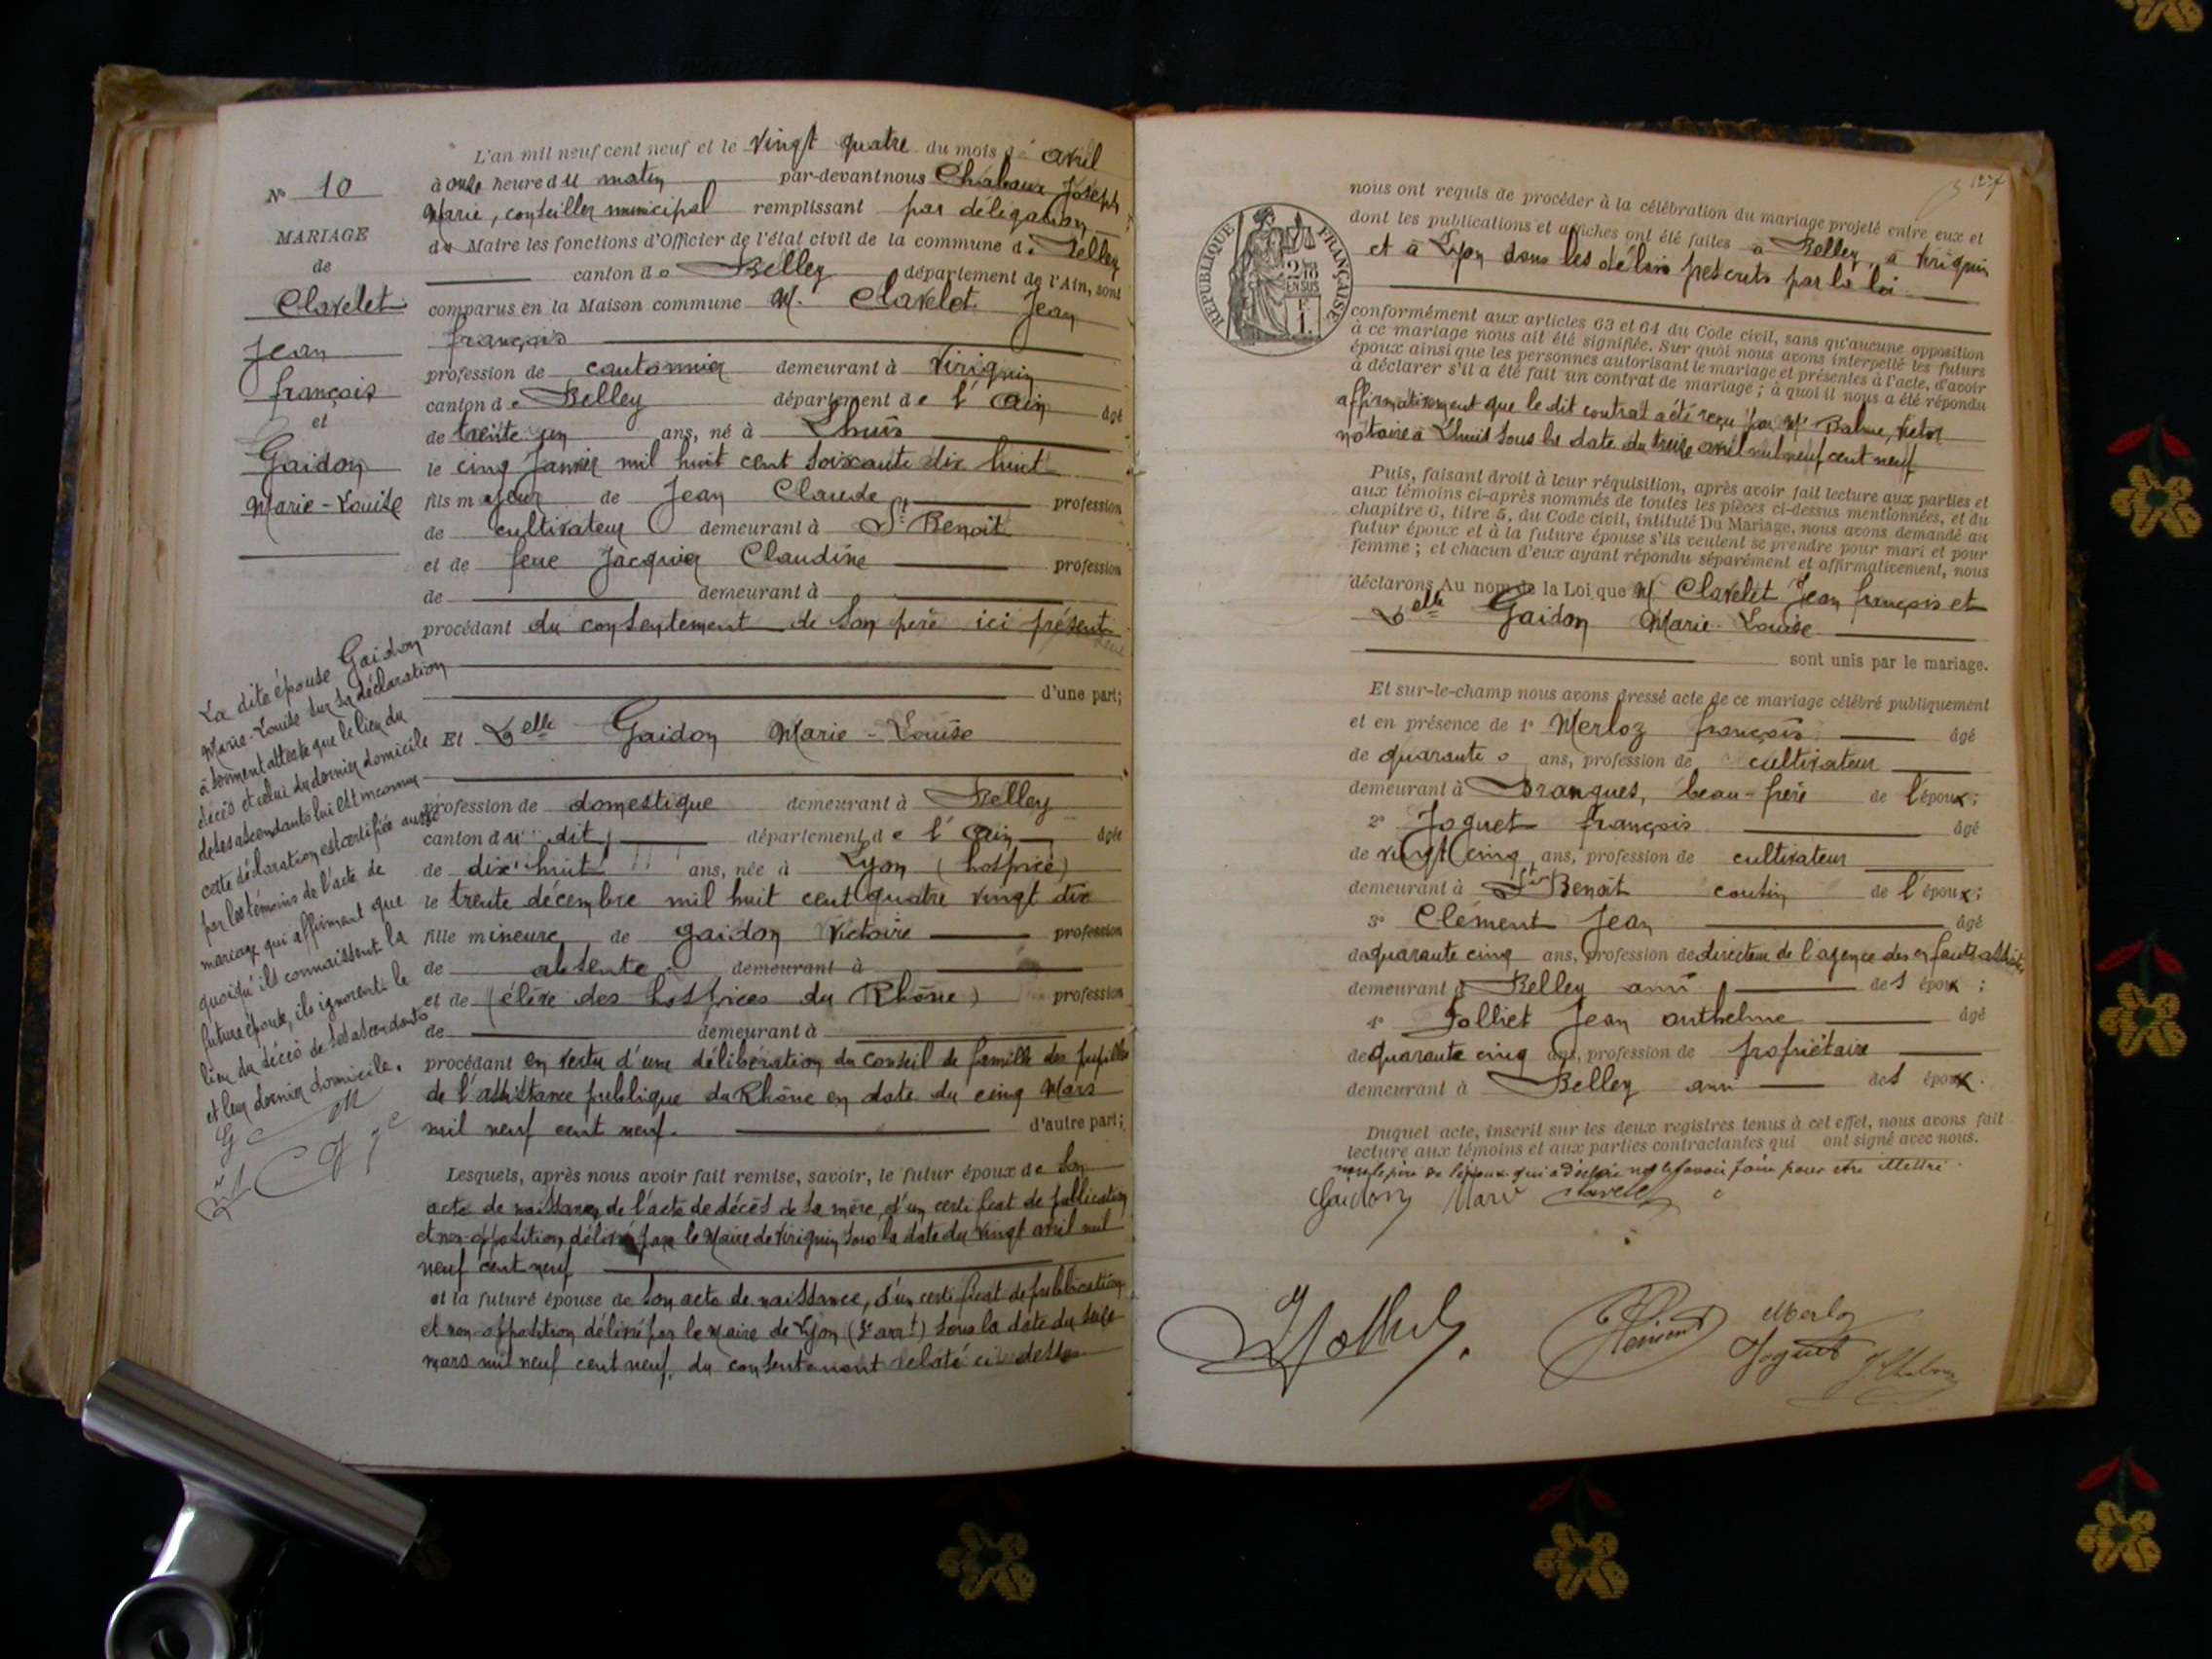 N° 10
MARIAGE
de
Clavelet
Jean
françois
et
Gaidon
Marie-Louise
La dite épouse Gaidon
Marie-Louise sur sa déclaration
à serment atteste que le lieu du
décès et celui du dernier domicile
de ses ascendants lui est inconnu
cette déclaration est certifiée aussi
par les témoins de l'acte de
mariage qui affirment que
quoiqu'ils connaissent la
future épouse, ils ignorent le
lieu du décès de ses ascendants
et leur dernier domicile.
L'an mil neuf cent neuf et le Vingt quatre du mois d' avril
à onze heure du matin par-devant nous Chabaux Joseph
Marie, conseiller municipal remplissant par délégation
du Maire les fonctions d'Officier de l'état civil de la commune de Belley
canton de Belley département de l'Ain, sont
comparus en la Maison commune M. Clavelet Jean
françois
profession de cantonnier demeurant à Virignin
canton de Belley département de l'Ain âgé
de trente un ans, né à Lhuis
le cinq Janvier mil huit cent soixante dix huit
fils majeur de Jean Claude profession
de cultivateur demeurant à St Benoit
et de feue Jacquier Claudine profession
de demeurant à
procédant du consentement de son père ici présent
d'une part;
Et Delle Gaidon Marie-Louise
profession de domestique demeurant à Belley
canton du dit département de l'Ain âgée
de dix huit ans, née à Lyon (hospice)
le trente décembre mil huit cent quatre vingt dix
fille mineure de Gaidon Victoire profession
de absente demeurant à
et de (élève des hospices du Rhône) profession
de demeurant à
procédant en vertu d'une délibération du conseil de famille des pupilles
de l'assistance publique du Rhône en date du cinq Mars
mil neuf cent neuf. d'autre part;
Lesquels, après nous avoir fait remise, savoir, le futur époux de son
acte de naissance, de l'acte de décès de sa mère, d'un certificat de publication
et non-opposition délivré par le Maire de Virignin sous la date du vingt avril mil
neuf cent neuf
et la future épouse de son acte de naissance, d'un certificat de publication
et non-opposition délivré par le Maire de Lyon (3e arrt) sous la date du seize
mars mil neuf cent neuf, du consentement relaté ci-dessus
127
RÉPUBLIQUE FRANÇAISE
2/10 EN SUS
F
1.
nous ont requis de procéder à la célébration du mariage projeté entre eux et
dont les publications et affiches ont été faites à Belley, à Virignin
et à Lyon dans les délais prescrits par la loi
conformément aux articles 63 et 64 du Code civil, sans qu'aucune opposition
à ce mariage nous ait été signifiée. Sur quoi nous avons interpellé les futurs
époux ainsi que les personnes autorisant le mariage et présentes à l'acte, d'avoir
à déclarer s'il a été fait un contrat de mariage; à quoi il nous a été répondu
affirmativement que le dit contrat a été reçu par Me Balme, Victor
notaire à Lhuis sous la date du treize avril mil neuf cent neuf
Puis, faisant droit à leur réquisition, après avoir fait lecture aux parties et
aux témoins ci-après nommés de toutes les pièces ci-dessus mentionnées, et du
chapitre 6, titre 5, du Code civil, intitulé Du Mariage, nous avons demandé au
futur époux et à la future épouse s'ils veulent se prendre pour mari et pour
femme; et chacun d'eux ayant répondu séparément et affirmativement, nous
déclarons Au nom de la Loi que M. Clavelet Jean françois et
Delle Gaidon Marie-Louise
sont unis par le mariage.
Et sur-le-champ nous avons dressé acte de ce mariage célébré publiquement
et en présence de 1° Merloz françois âgé
de quarante ans, profession de cultivateur
demeurant à Brangues, beau-frère de l'époux;
2° Joguet françois âgé
de vingt cinq ans, profession de cultivateur
demeurant à St Benoit cousin de l'époux;
3° Clément Jean âgé
de quarante cinq ans, profession de directeur de l'agence des enfants assistés
demeurant à Belley ami des époux;
4° Jolliet Jean anthelme âgé
de quarante cinq ans, profession de propriétaire
demeurant à Belley ami des époux.
Duquel acte, inscrit sur les deux registres tenus à cet effet, nous avons fait
lecture aux témoins et aux parties contractantes qui ont signé avec nous.
le père de l'époux qui a déclaré ne le savoir faire pour être illettré.
Gaidon Marie Clavelet
Clément Merloz
Joguet